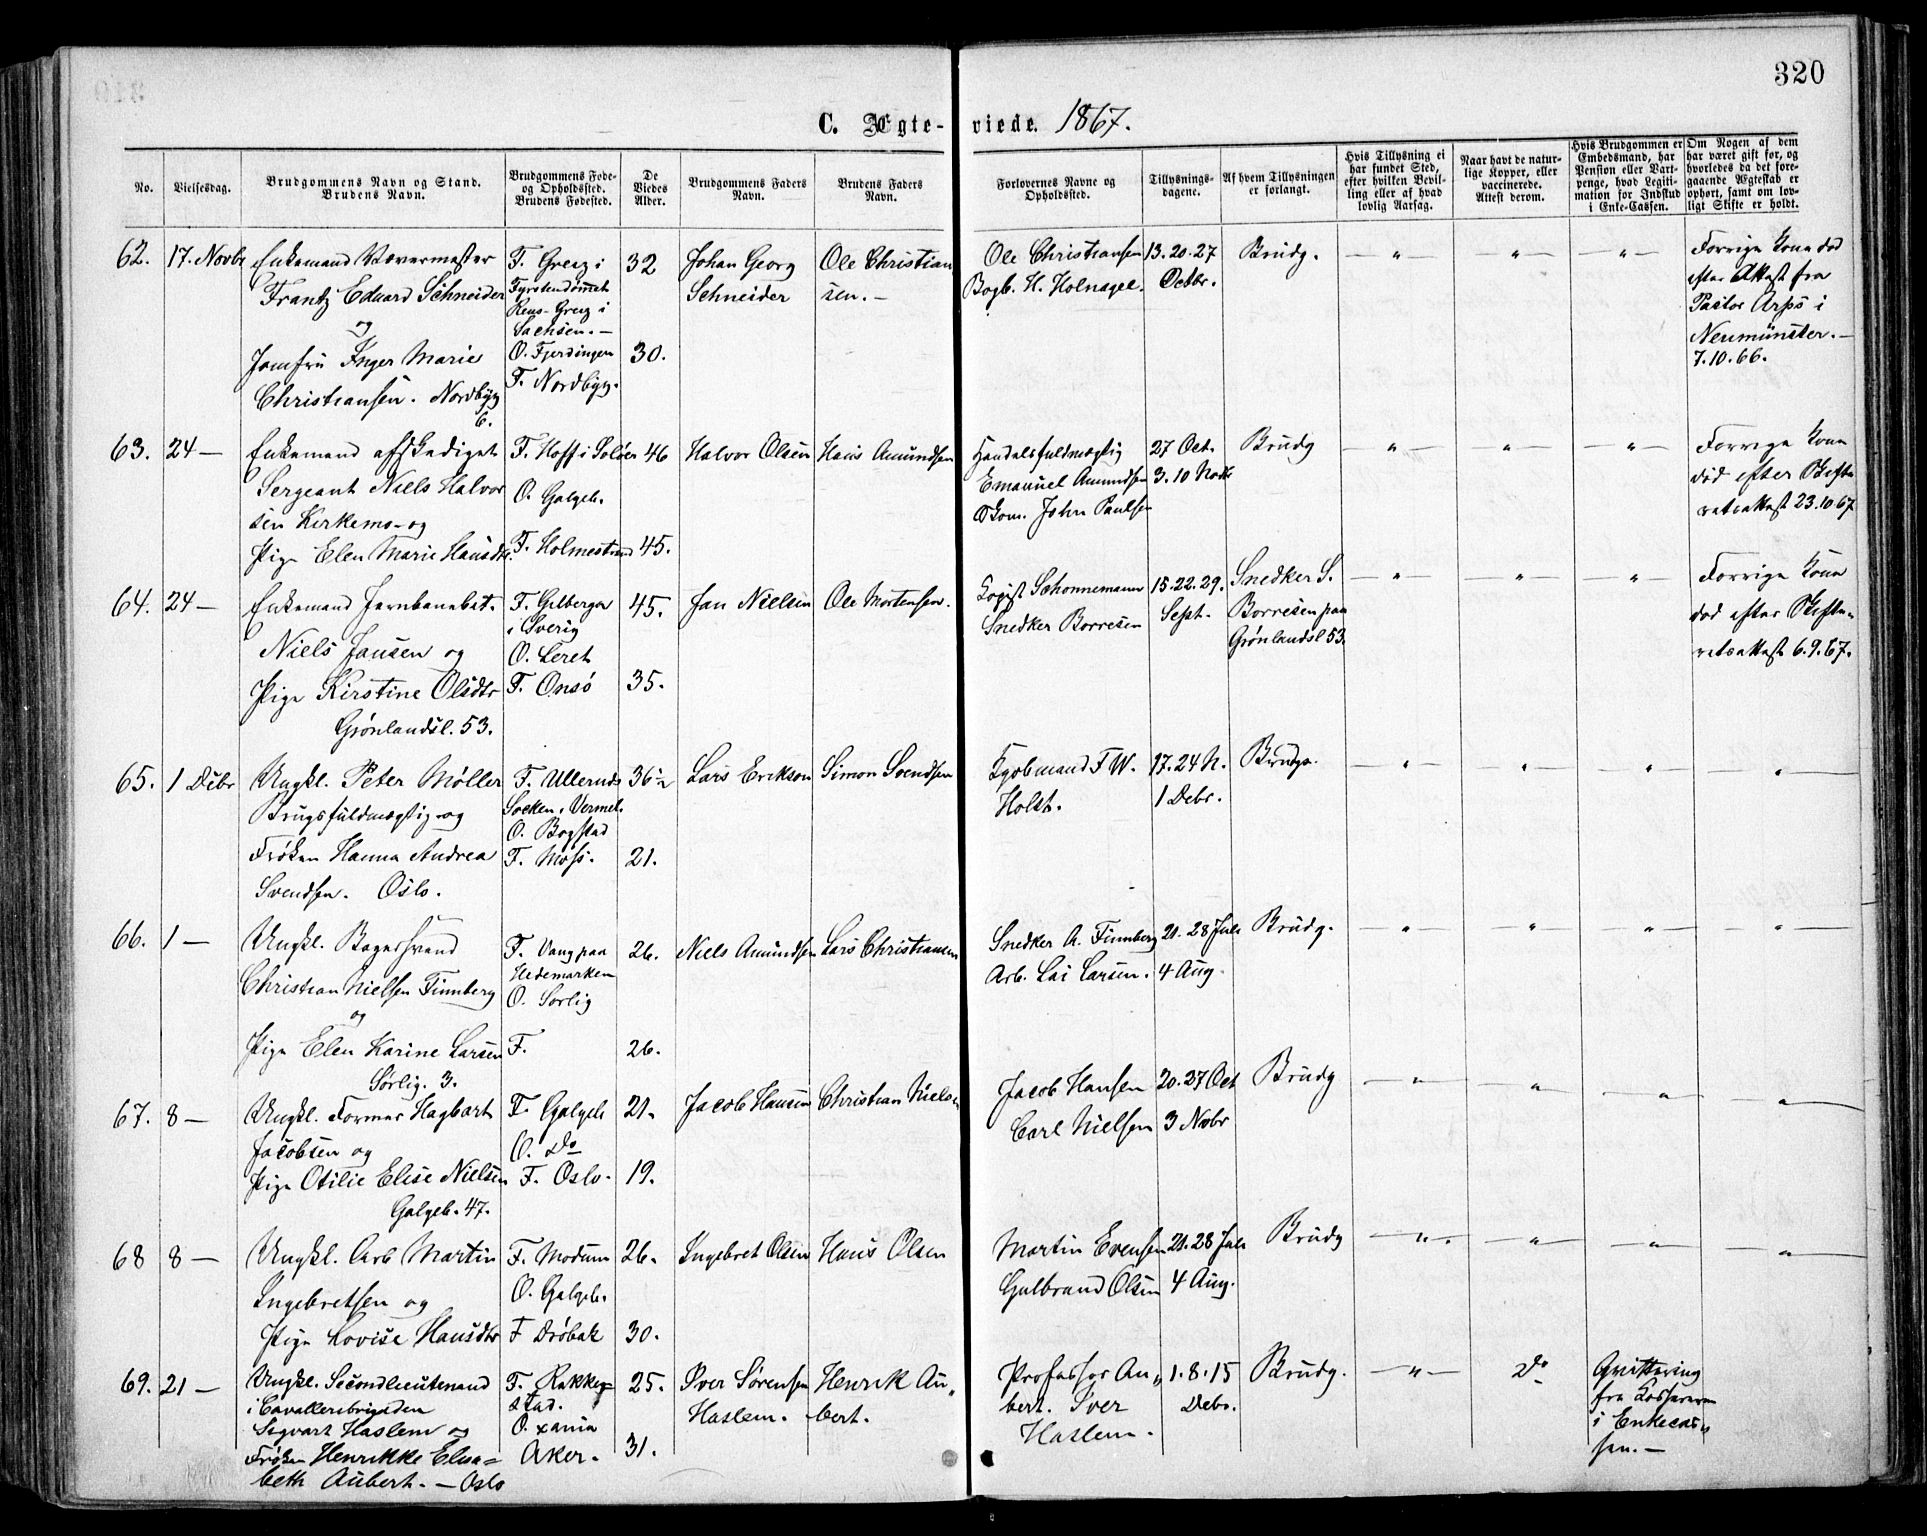 320
C. Ægte- viede. 1867.
No.
Vielsesdag.
Brudgommens Navn og Stand.
Brudens Navn.
Brudgommens Føde-
og Opholdssted.
Brudens Fødested.
De
Viedes
Alder.
Brudgommens Faders
Navn.
Brudens Faders
Navn.
Forlovernes Navne og
Opholdssted.
Tillysnings-
dagene.
Af hvem Tillysningen
er forlangt.
Hvis Tillysning ei
har fundet Sted,
efter hvilken Bevil-
ling eller af hvad
lovlig Aarsag.
Naar havt de natur-
lige Kopper, eller
vaccinerede.
Attest derom.
Hvis Brudgommen er
Embedsmand, har
Pension eller Vart-
penge, hvad Legiti-
mation for Indskud
i Enke-Cassen.
Om Nogen af dem
har været gift før, og
hvorledes da det fore-
gaaende Ægteskab er
ophørt, samt om lov-
ligt Skifte er holdt.
62. 17. Novbr
Enkemand Vævermester
Frantz Eduard Schneider
og
Jomfru Inger Marie
Christiansen. Nordbyg
6.
F. Greiz i
Fyrstendømmet
Reus-Greiz i
Sachsen. —
O. Fjerdingen
F. Nordbyg.
32
30.
Johan Georg
Schneider
Ole Christian
sen. —
Ole Christiansen
Bogb. H. Holnagel.
13. 20. 27
Octbr.
Brudg.
— " —
"
— " —
Forrige Kone død
efter Attest fra
Pastor Arps i
Neumünster. —
7.10.66.
63. 24 —
Enkemand afskediget
Sergeant Niels Halvor
sen Kirkemo - og
Pige Elen Marie Hansdtr.
F. Hoff i Solør
O. Galgeb.
F. Holmestrand
46
45.
Halvor Olsen
Hans Amundsen
Handelsfuldmægtig
Emanuel Amundsen
Skom. John Paulsen
27 Oct.
3. 10 Novbr
Brudg
— " —
"
— " —
Forrige Kone
død efter Skifte
retsattest 23.10.67
64. 24 —
Enkemand Jernbanebet.
Niels Jansen og
Pige Kirstine Olsdtr
Grønlandsl. 53.
F. Gilberga
i Sverig
O. Leret
F. Onsö
45.
35.
Jan Nielsen
Ole Mortensen.
Logist Schonnemann
Snedker Borresen
15. 22. 29.
Sept.
Snedker S.
Borresen paa
Grønlandsl 53.
— " —
"
"
Forrige Kone
død efter Skifte-
retsattest 6.9.67.
65. 1 Debr
Ungkl. Peter Møller
Brugsfuldmægtig og
Frøken Hanna Andrea
Svendsen. Oslo.
F. Ulleruds
Socken, Vermel.
O. Bogstad
F. Moss.
36½
21.
Lars Erikson
Simon Svendsen
Kjøbmand F W.
Holst.
17. 24 N.
1 Debr.
Brudg.
— " —
"
"
"
66. 1 —
Ungkl. Bagersvend
Christian Nielsen Finnberg
og
Pige Elen Karine Larsen
Sørlig. 3.
F. Vang paa
Hedemarken
O. Sorlig
F.
26.
26.
Niels Amundsen
Lars Christiansen
Snedker A. Finnberg
Arb. Lai Larsen.
21. 28 Juli
4 Aug.
Brudg.
— " —
"
"
"
67. 8 —
Ungkl. Former Hagbart
Jacobsen og
Pige Otilie Elise Nielsen
Galgeb. 47.
F. Galgeb
O. Do
F. Oslo.
21.
19.
Jacob Hansen
Christian Nielsen
Jacob Hansen
Carl Nielsen
20. 27 Oct
3 Novbr
Brudg
— " —
"
— " —
"
68 8 —
Ungkl. Arb Martin
Ingebretsen og
Pige Lovise Hansdtr
F. Modum
O. Galgeb.
F Drøbak
26.
30.
Ingebret Olsen
Hans Olsen
Martin Evensen
Gulbrand Olsen
21. 28 Juli
4 Aug.
Brudg
— " —
"
"
"
69. 21 —
Ungkl. Secondlieutenand
i Cavalleribrigaden
Sigvart Haslem og
Frøken Henrikke Elisa-
beth Aubert. — Oslo
F. Rakke-
stad.
O. xania
Aker.
25.
31.
Iver Sørensen
Haslem.
Henrik Au-
bert.
Professor Au-
bert. Iver
Haslem.
1. 8. 15
Debr.
Brudg.
— " —
Do
Qvittering
fra Kassereren
i Enkecas-
sen. —